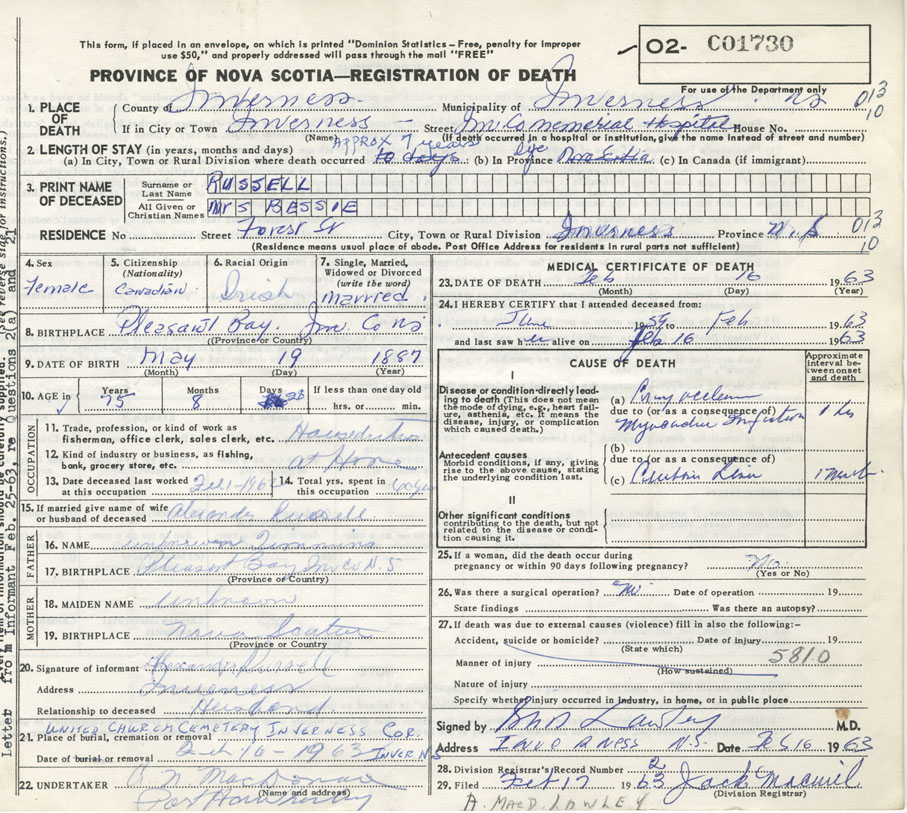 This form, if placed in an envelope, on which is printed "Dominion Statistics—Free, penalty for improper
use $50," and properly addressed will pass through the mail "FREE"
O2- C01730
PROVINCE OF NOVA SCOTIA—REGISTRATION OF DEATH
For use of the Department only
1. PLACE OF DEATH
County of Inverness Municipality of Inverness NS 013
10
If in City or Town Inverness Street Memorial Hospital House No.
(Name) (If death occurred in a hospital or institution, give name instead of street and number)
2. LENGTH OF STAY (in years, months and days) APPROX 7 years
(a) In City, Town or Rural Division where death occurred (b) In Province (c) In Canada (if immigrant)
3. PRINT NAME OF DECEASED
Surname or Last Name RUSSELL
All Given or Christian Names Mrs BESSIE
RESIDENCE No Street Forest St City, Town or Rural Division Inverness Province N.S 013
10
(Residence means usual place of abode. Post Office Address for residents in rural parts not sufficient)
4. Sex Female
5. Citizenship (Nationality) Canadian
6. Racial Origin Irish
7. Single, Married, Widowed or Divorced (write the word) married
8. BIRTHPLACE Pleasant Bay. Inv. Co NS
(Province or Country)
9. DATE OF BIRTH May 19 1887
(Month) (Day) (Year)
10. AGE in Years 75 Months 8 Days 28 If less than one day old hrs. or min.
OCCUPATION
11. Trade, profession, or kind of work as
fisherman, office clerk, sales clerk, etc.
12. Kind of industry or business, as fishing,
bank, grocery store, etc. at Home
13. Date deceased last worked at this occupation
14. Total yrs. spent in this occupation
15. If married give name of wife
or husband of deceased Alexander Russell
FATHER
16. NAME unknown Timmins
17. BIRTHPLACE Pleasant Bay Inv Co N.S
(Province or Country)
MOTHER
18. MAIDEN NAME unknown
19. BIRTHPLACE Nova Scotia
(Province or Country)
20. Signature of informant Alexander Russell
Address Inverness
Relationship to deceased Husband
UNITED CHURCH CEMETERY INVERNESS COR.
21. Place of burial, cremation or removal
Date of burial or removal Feb 16 - 1963 INVER N S
22. UNDERTAKER
(Name and address)
Port Hawkesbury
MEDICAL CERTIFICATE OF DEATH
23. DATE OF DEATH Feb 16 1963
(Month) (Day) (Year)
24. I HEREBY CERTIFY that I attended deceased from:
June 1959 to Feb 1963
and last saw alive on Feb 16 1963
CAUSE OF DEATH
Approximate interval between onset and death
I
Disease or condition directly leading to death (This does not mean the mode of dying, e.g., heart failure, asthenia, etc. It means the disease, injury, or complication which caused death.)
(a)
due to (or as a consequence of)
Antecedent causes
Morbid conditions, if any, giving rise to the above cause, stating the underlying condition last.
(b)
due to (or as a consequence of)
(c)
II
Other significant conditions
contributing to the death, but not related to the disease or condition causing it.
25. If a woman, did the death occur during
pregnancy or within 90 days following pregnancy? No
(Yes or No)
26. Was there a surgical operation? No Date of operation 19
State findings Was there an autopsy?
27. If death was due to external causes (violence) fill in also the following:—
Accident, suicide or homicide? Date of injury 19
(State which)
Manner of injury 5810
(How sustained)
Nature of injury
Specify whether injury occurred in industry, in home, or in public place
Signed by Lawley M.D.
Address INVERNESS N.S. Date Feb 16 1963
28. Division Registrar's Record Number 2
29. Filed Feb 17 1963
(Division Registrar)
A. MACD. LAWLEY
Letter from Informant Feb. 25-63, re Questions 2(a) and 21